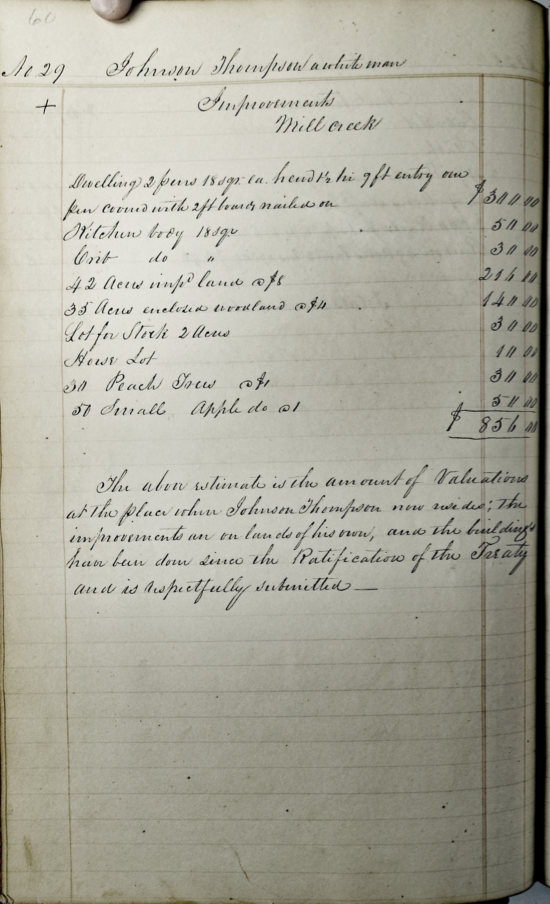 60
No. 29 Johnson Thompson a white man
+ Improvements
Mill creek
Dwelling 2 pens 18 sqr. ea. hewd 1½ hi 9 ft entry one $300 00
pen covered with 2 ft boards nailed on
Kitchen body 18 sqr 50 00
Crib do " 30 00
42 Acres impd land @ $8 216 00
35 Acres enclosed woodland @ $4 140 00
Lot for Stock 2 Acres 30 00
Horse Lot 10 00
30 Peach Trees @ $1 30 00
50 Small Apple do @ 1 50 00
$ 856 00
The above estimate is the amount of Valuations
at the place where Johnson Thompson now resides; the
improvements are on lands of his own, and the buildings
have been done since the Ratification of the Treaty
and is respectfully submitted —